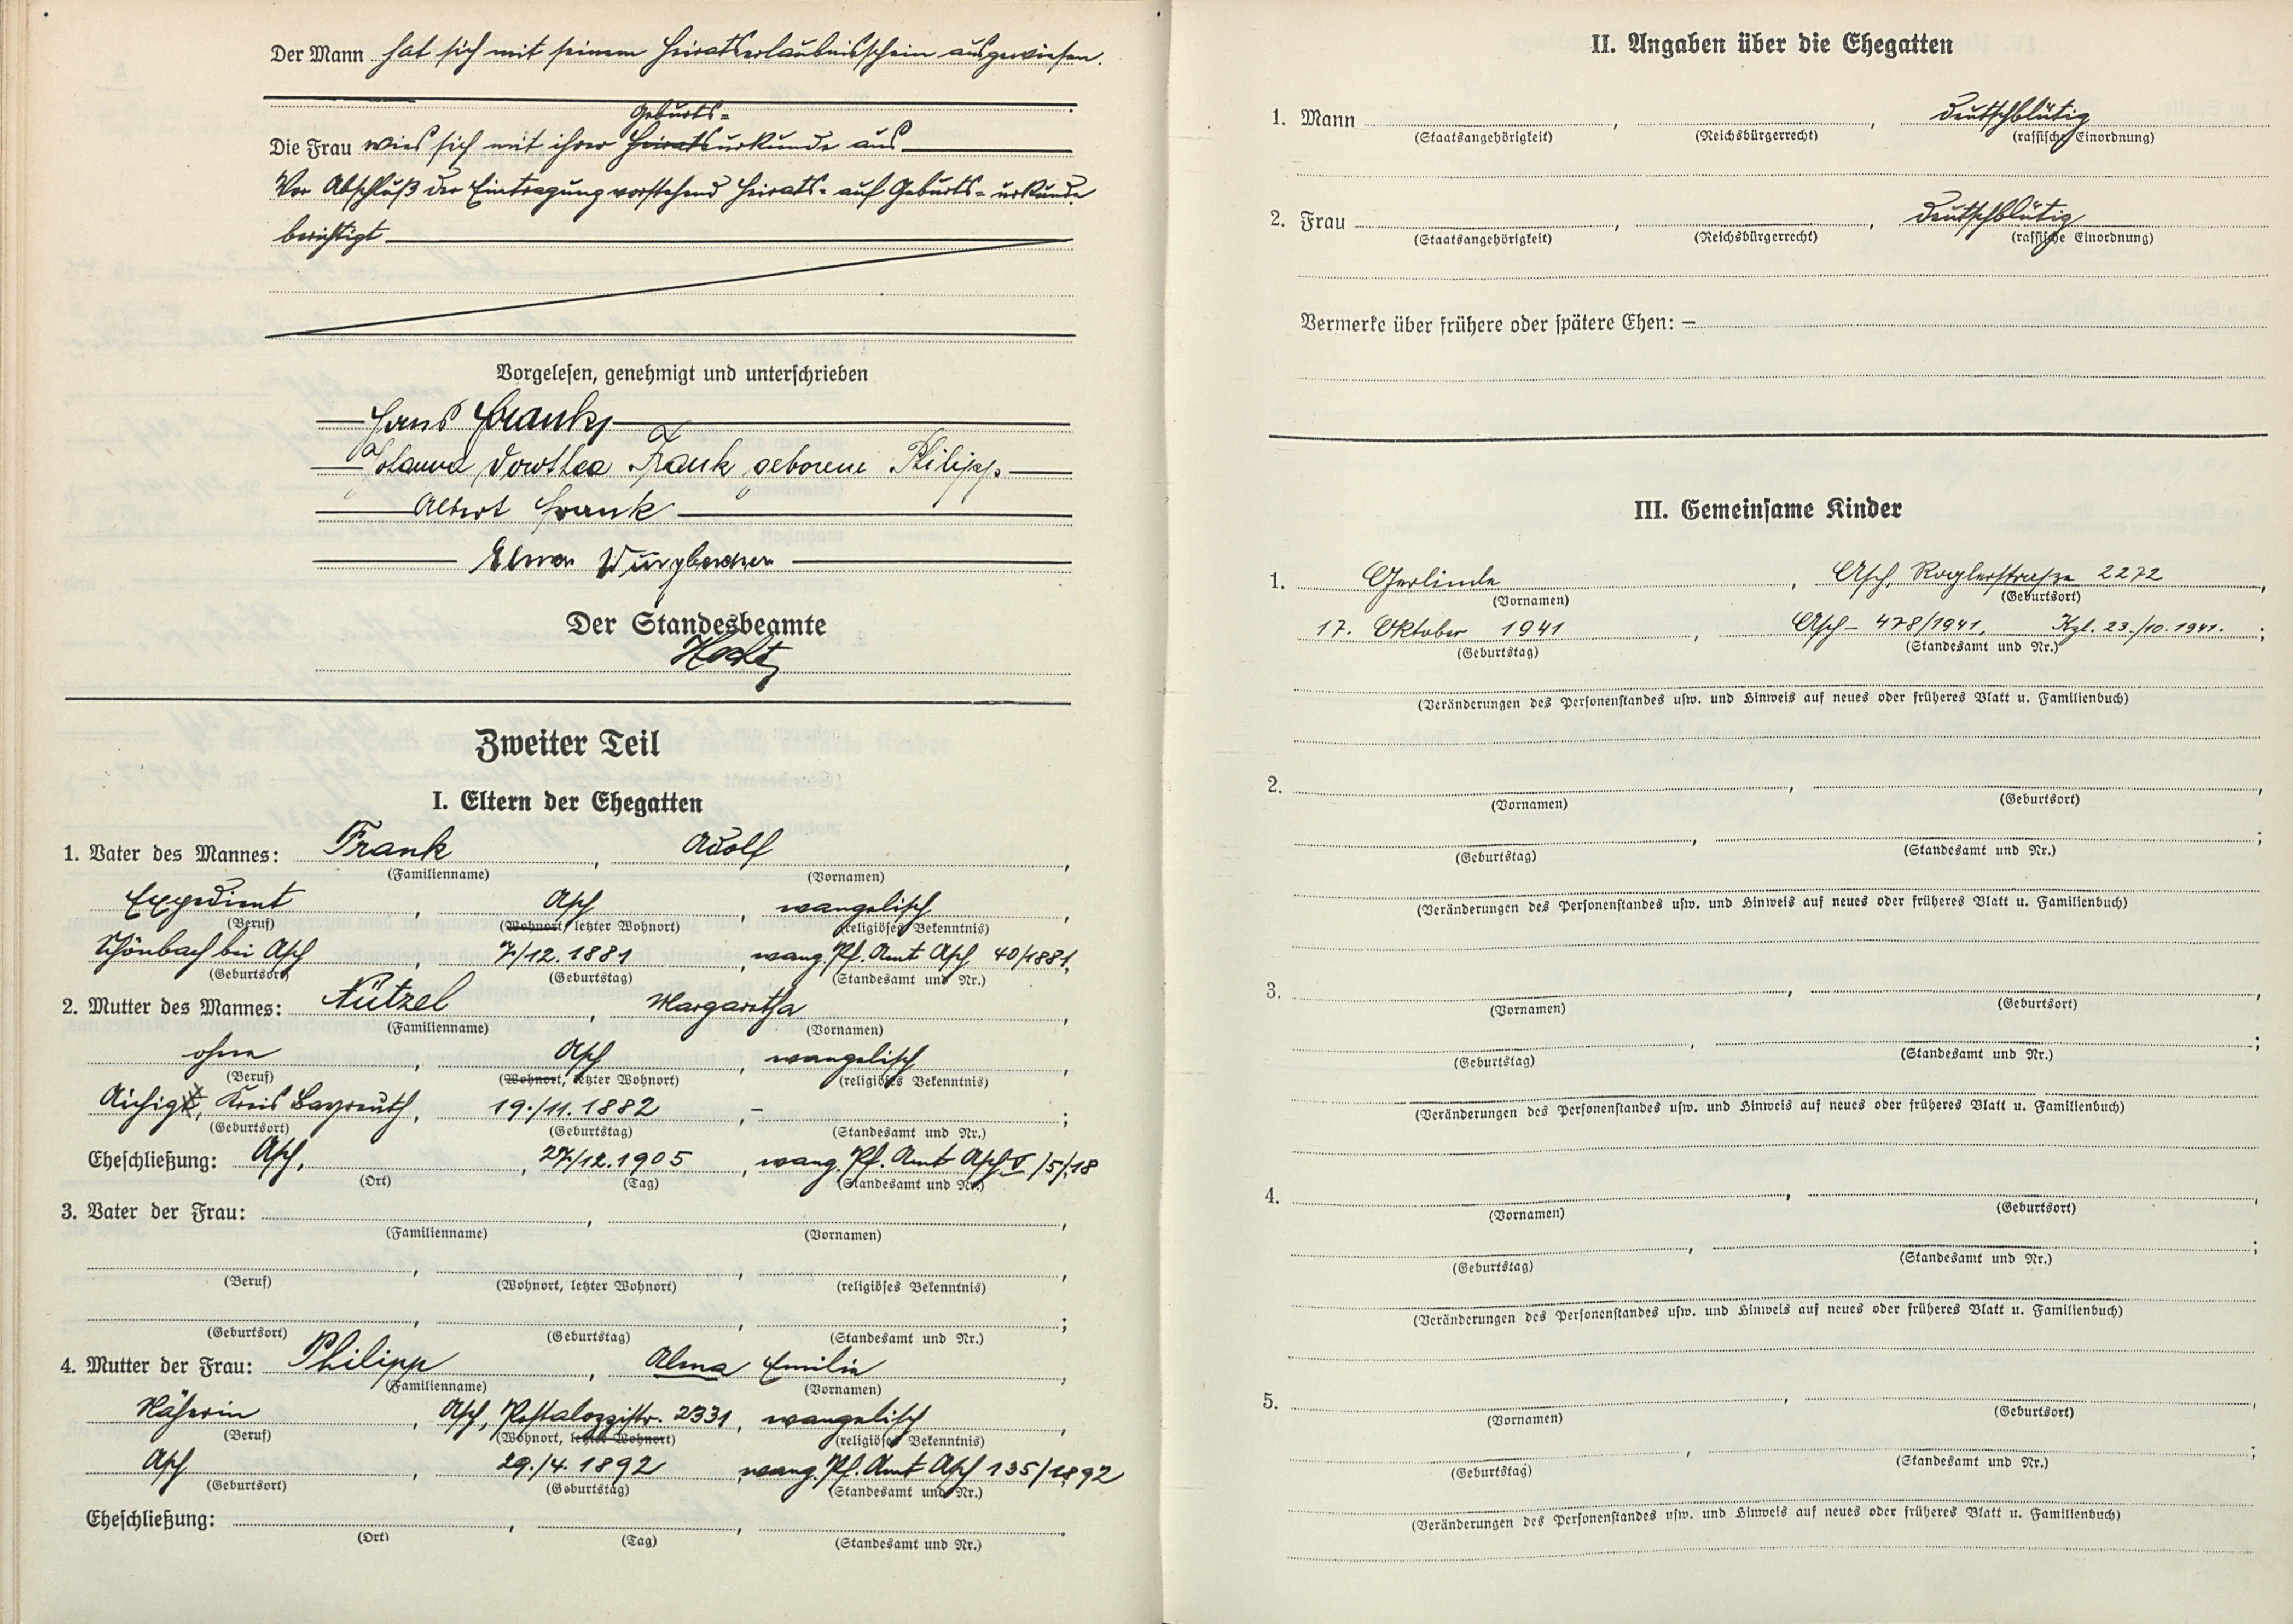 Der Mann hat sich mit seinem Heiratserlaubnisschein ausgewiesen.
Geburts-
Die Frau wies sich mit ihrer Heiratsurkunde aus
Vor Abschluß der Eintragung vorstehend Heirats- auf Geburts-urkunde
berichtigt
Vorgelesen, genehmigt und unterschrieben
Hans Frank
Johanna Dorothea Frank geborene Philipp
Albert Frank
Der Standesbeamte
Zweiter Teil
I. Eltern der Ehegatten
1. Vater des Mannes: Frank, Adolf,
(Familienname) (Vornamen)
Expedient, Asch, evangelisch,
(Beruf) (Wohnort, letzter Wohnort) (religiöses Bekenntnis)
Schönbach bei Asch, 7/12.1881, evang. Pf. Amt Asch 40/1881,
(Geburtsort) (Geburtstag) (Standesamt und Nr.)
2. Mutter des Mannes: Nützel, Margaretha,
(Familienname) (Vornamen)
ohne, Asch, evangelisch,
(Beruf) (Wohnort, letzter Wohnort) (religiöses Bekenntnis)
Aichig, Kreis Bayreuth, 19./11.1882, –;
(Geburtsort) (Geburtstag) (Standesamt und Nr.)
Eheschließung: Asch, 27/12.1905, evang. Pf. Amt Asch V/5/18
(Ort) (Tag) (Standesamt und Nr.)
3. Vater der Frau: , ,
(Familienname) (Vornamen)
(Beruf) (Wohnort, letzter Wohnort) (religiöses Bekenntnis)
(Geburtsort) (Geburtstag) (Standesamt und Nr.)
4. Mutter der Frau: Philipp, Alma Emilie,
(Familienname) (Vornamen)
Näherin, Asch, Pestalozzistr. 2331, evangelisch,
(Beruf) (Wohnort, letzter Wohnort) (religiöses Bekenntnis)
Asch, 29./4.1892, evang. Pf. Amt Asch 135/1892
(Geburtsort) (Geburtstag) (Standesamt und Nr.)
Eheschließung: , , .
(Ort) (Tag) (Standesamt und Nr.)
II. Angaben über die Ehegatten
1. Mann , , deutschblütig
(Staatsangehörigkeit) (Reichsbürgerrecht) (rassische Einordnung)
2. Frau , , deutschblütig
(Staatsangehörigkeit) (Reichsbürgerrecht) (rassische Einordnung)
Vermerke über frühere oder spätere Ehen: –
III. Gemeinsame Kinder
1. Gerlinde, Asch, Roglerstraße 2272,
(Vornamen) (Geburtsort)
17. Oktober 1941, Asch – 478/1941, Kzl. 23./10.1941.;
(Geburtstag) (Standesamt und Nr.)
(Veränderungen des Personenstandes usw. und Hinweis auf neues oder früheres Blatt u. Familienbuch)
2. , ,
(Vornamen) (Geburtsort)
(Geburtstag) (Standesamt und Nr.)
(Veränderungen des Personenstandes usw. und Hinweis auf neues oder früheres Blatt u. Familienbuch)
3. , ,
(Vornamen) (Geburtsort)
(Geburtstag) (Standesamt und Nr.)
(Veränderungen des Personenstandes usw. und Hinweis auf neues oder früheres Blatt u. Familienbuch)
4. , ,
(Vornamen) (Geburtsort)
(Geburtstag) (Standesamt und Nr.)
(Veränderungen des Personenstandes usw. und Hinweis auf neues oder früheres Blatt u. Familienbuch)
5. , ,
(Vornamen) (Geburtsort)
(Geburtstag) (Standesamt und Nr.)
(Veränderungen des Personenstandes usw. und Hinweis auf neues oder früheres Blatt u. Familienbuch)